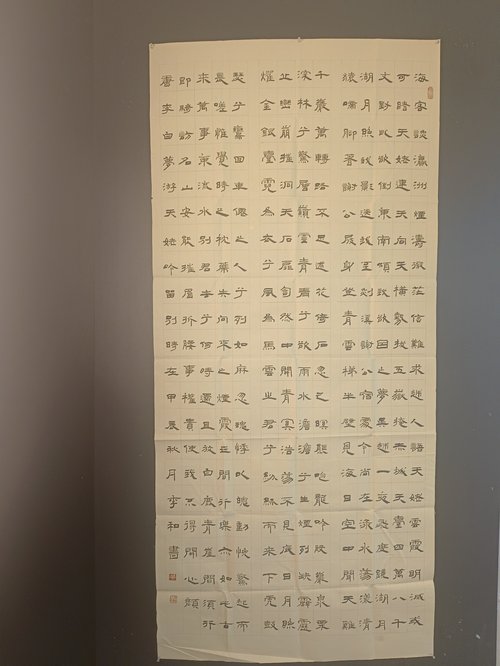 海客談瀛洲煙濤微茫信難求越人語天姥雲霞明滅或
可睹天姥連天向天橫勢拔五嶽掩赤城天臺四萬八千
丈對此欲倒東南傾我欲因之夢吳越一夜飛度鏡湖月
湖月照我影送我至剡溪謝公宿處今尚在淥水蕩漾清
猿啼腳著謝公屐身登青雲梯半壁見海日空中聞天雞
千巖萬轉路不定迷花倚石忽已暝熊咆龍吟殷巖泉栗
深林兮驚層巔雲青青兮欲雨水澹澹兮生煙列缺霹靂
丘巒崩摧洞天石扉訇然中開青冥浩蕩不見底日月照
燿金銀臺霓為衣兮風為馬雲之君兮紛紛而來下虎鼓
瑟兮鸞回車僊之人兮列如麻忽魂悸以魄動怳驚起而
長嗟惟覺時之枕席失向來之煙霞世間行樂亦如此古
來萬事東流水別君去兮何時還且放白鹿青崖間須行
即騎訪名山安能摧眉折腰事權貴使我不得開心顏
唐李白夢游天姥吟留別時在甲辰秋月李和書